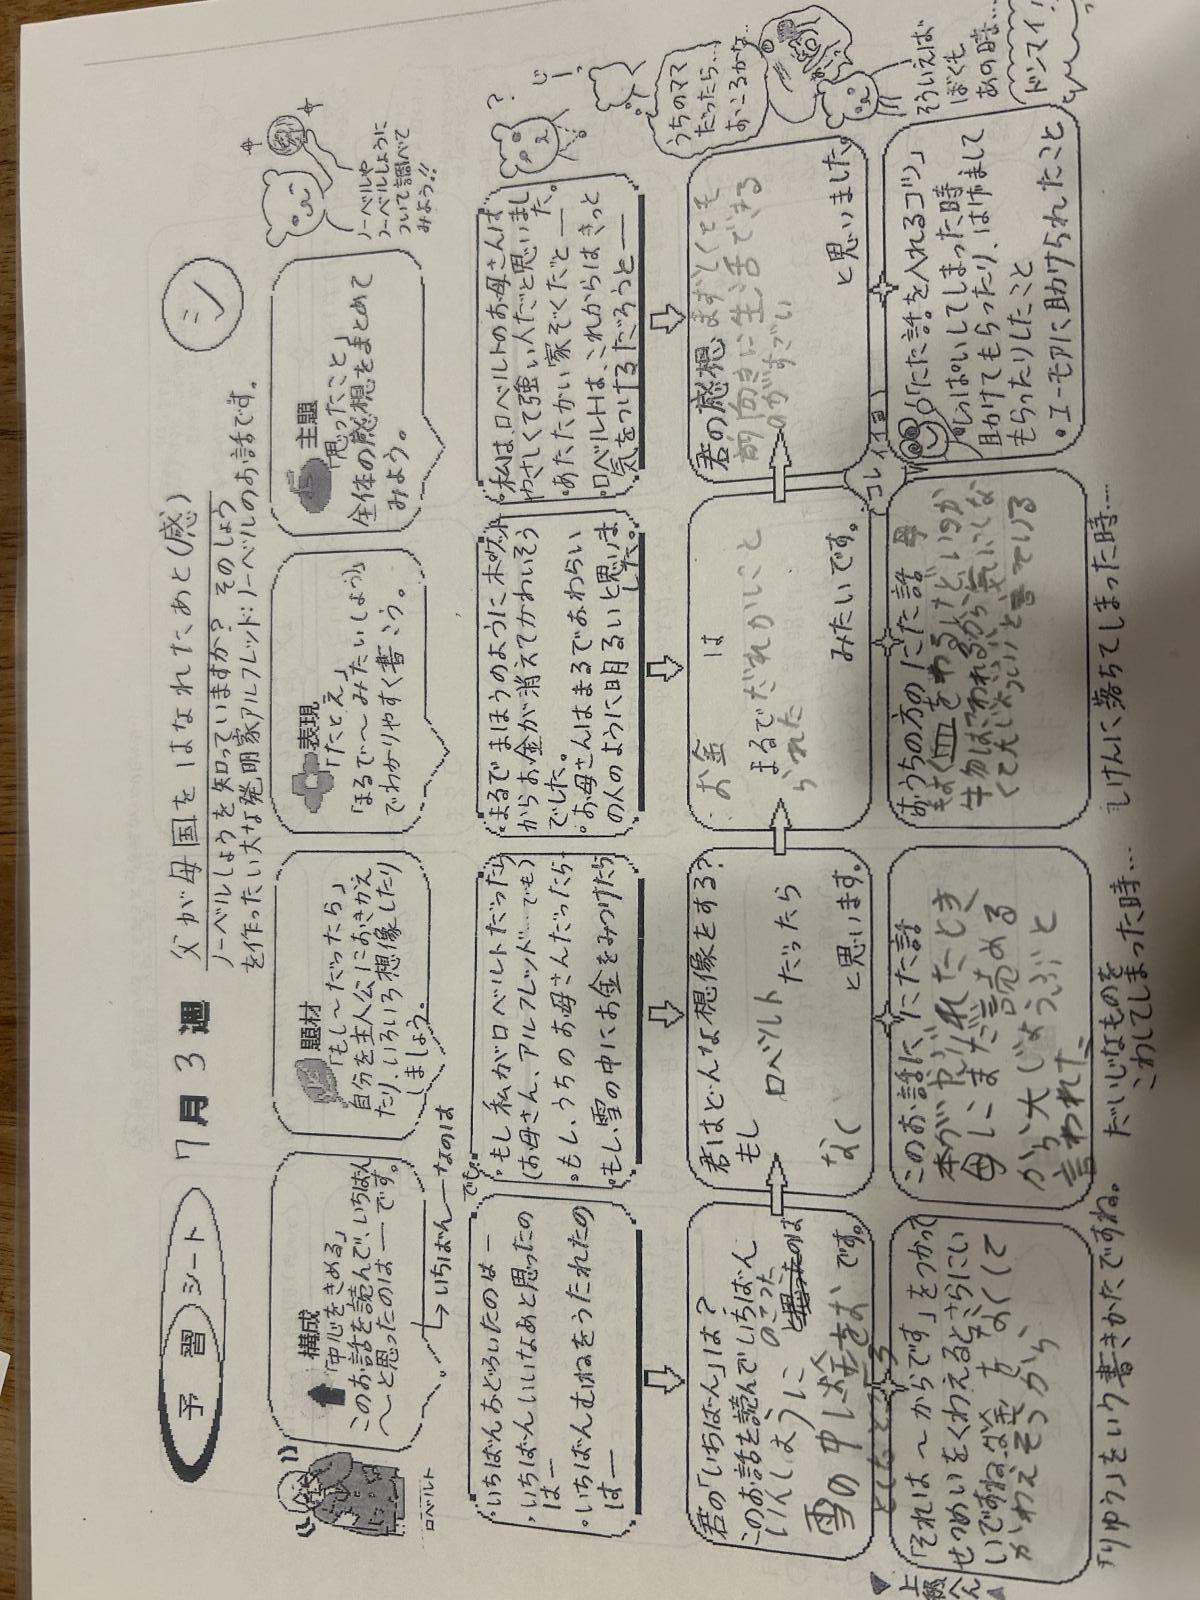 予習シート
7月3週
父が母国をはなれたあと(感)
シ
ノーベルしょうを知っていますか? そのしょう
を作ったい大な発明家アルフレッド・ノーベルのお話です。
ロベルト
構成
「中心をきめる」
このお話を読んで、いちばん
〜と思ったのは——です。
→いちばん——なのは
題材
「もし〜だったら」
自分を主人公におきかえ
たり、いろいろ想像したり
しましょう。
表現
「たとえ」
「まるで〜みたいしょう」
でわかりやすく書こう。
主題
「思ったこと」
全体の感想をまとめて
みよう。
ノーベルや
ノーベルしょうに
ついて調べて
みよう!!
・いちばんおどろいたのは—
・いちばんいいなあと思ったの
は—
・いちばんむねをうたれたの
は—
でも
・もし私がロベルトだったら
(お母さん、アルフレッド…でも)
・もし、うちのお母さんだったら
・もし、雪の中にお金をみつけたら
・まるでまほうのようにポケット
からお金が消えてかわいそう
でした。
・お母さんはまるでおわらい
の人のように明るいと思いま
した。
・私は、ロベルトのお母さんは
やさしくて強い人だと思いまし
た。
・あたたかい家ぞくだと—
・ロベルトは、これからはきっと
気をつけるだろうと—
?
じーっ
うちのママ
だったら…
おこるかな…
君の「いちばん」は?
このお話を読んでいちばん
いんしょうに
のこった
と思ったのは
雪の中にお金をお
とした
ところ
です。
君はどんな想像をする?
もし
ロベルト
だったら
なく
と思います。
お金
は
まるでだれかいこと
られた
みたいです。
君の感想
まずしくても
前向きに生活できる
のがすごい
と思いました。
コレイイ
上級へん
「それは〜からです」をつかって
せつめいをくわえるとさらにい
いですね。
お金をなくして
かわえそうから
このお話に、にた話
本がやぶれたとき
母にまだ読める
から大じょうぶと
言われた
おうちの方のにた話
母
もよく皿をわるけどいのか
牛物は「われるから気にしな
くて大じょうぶ」と言っている
「にた話を入れるコツ」
・しっぱいしてしまった時
助けてもらったり、はげまして
もらったりしたこと
・ユーモアに助けられたこと
そういえば
ぼくも
あの時…
ドンマイ!
「りゆう」をいう書きかたですね。
だいじなものを
こわしてしまった時…
しけんに落ちてしまった時…